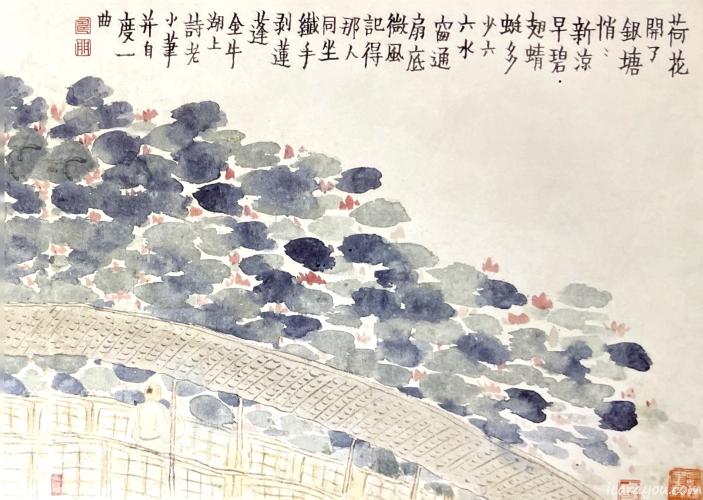 荷花
開了
銀塘
悄〻
新涼
早碧
翅蜻
蜓多
少六
六水
窗通
扇底
微風
記得
那人
同坐
纖手
剥蓮
蓬
金牛
湖上
詩老
小筆
并自
度一
曲
icarayou.com